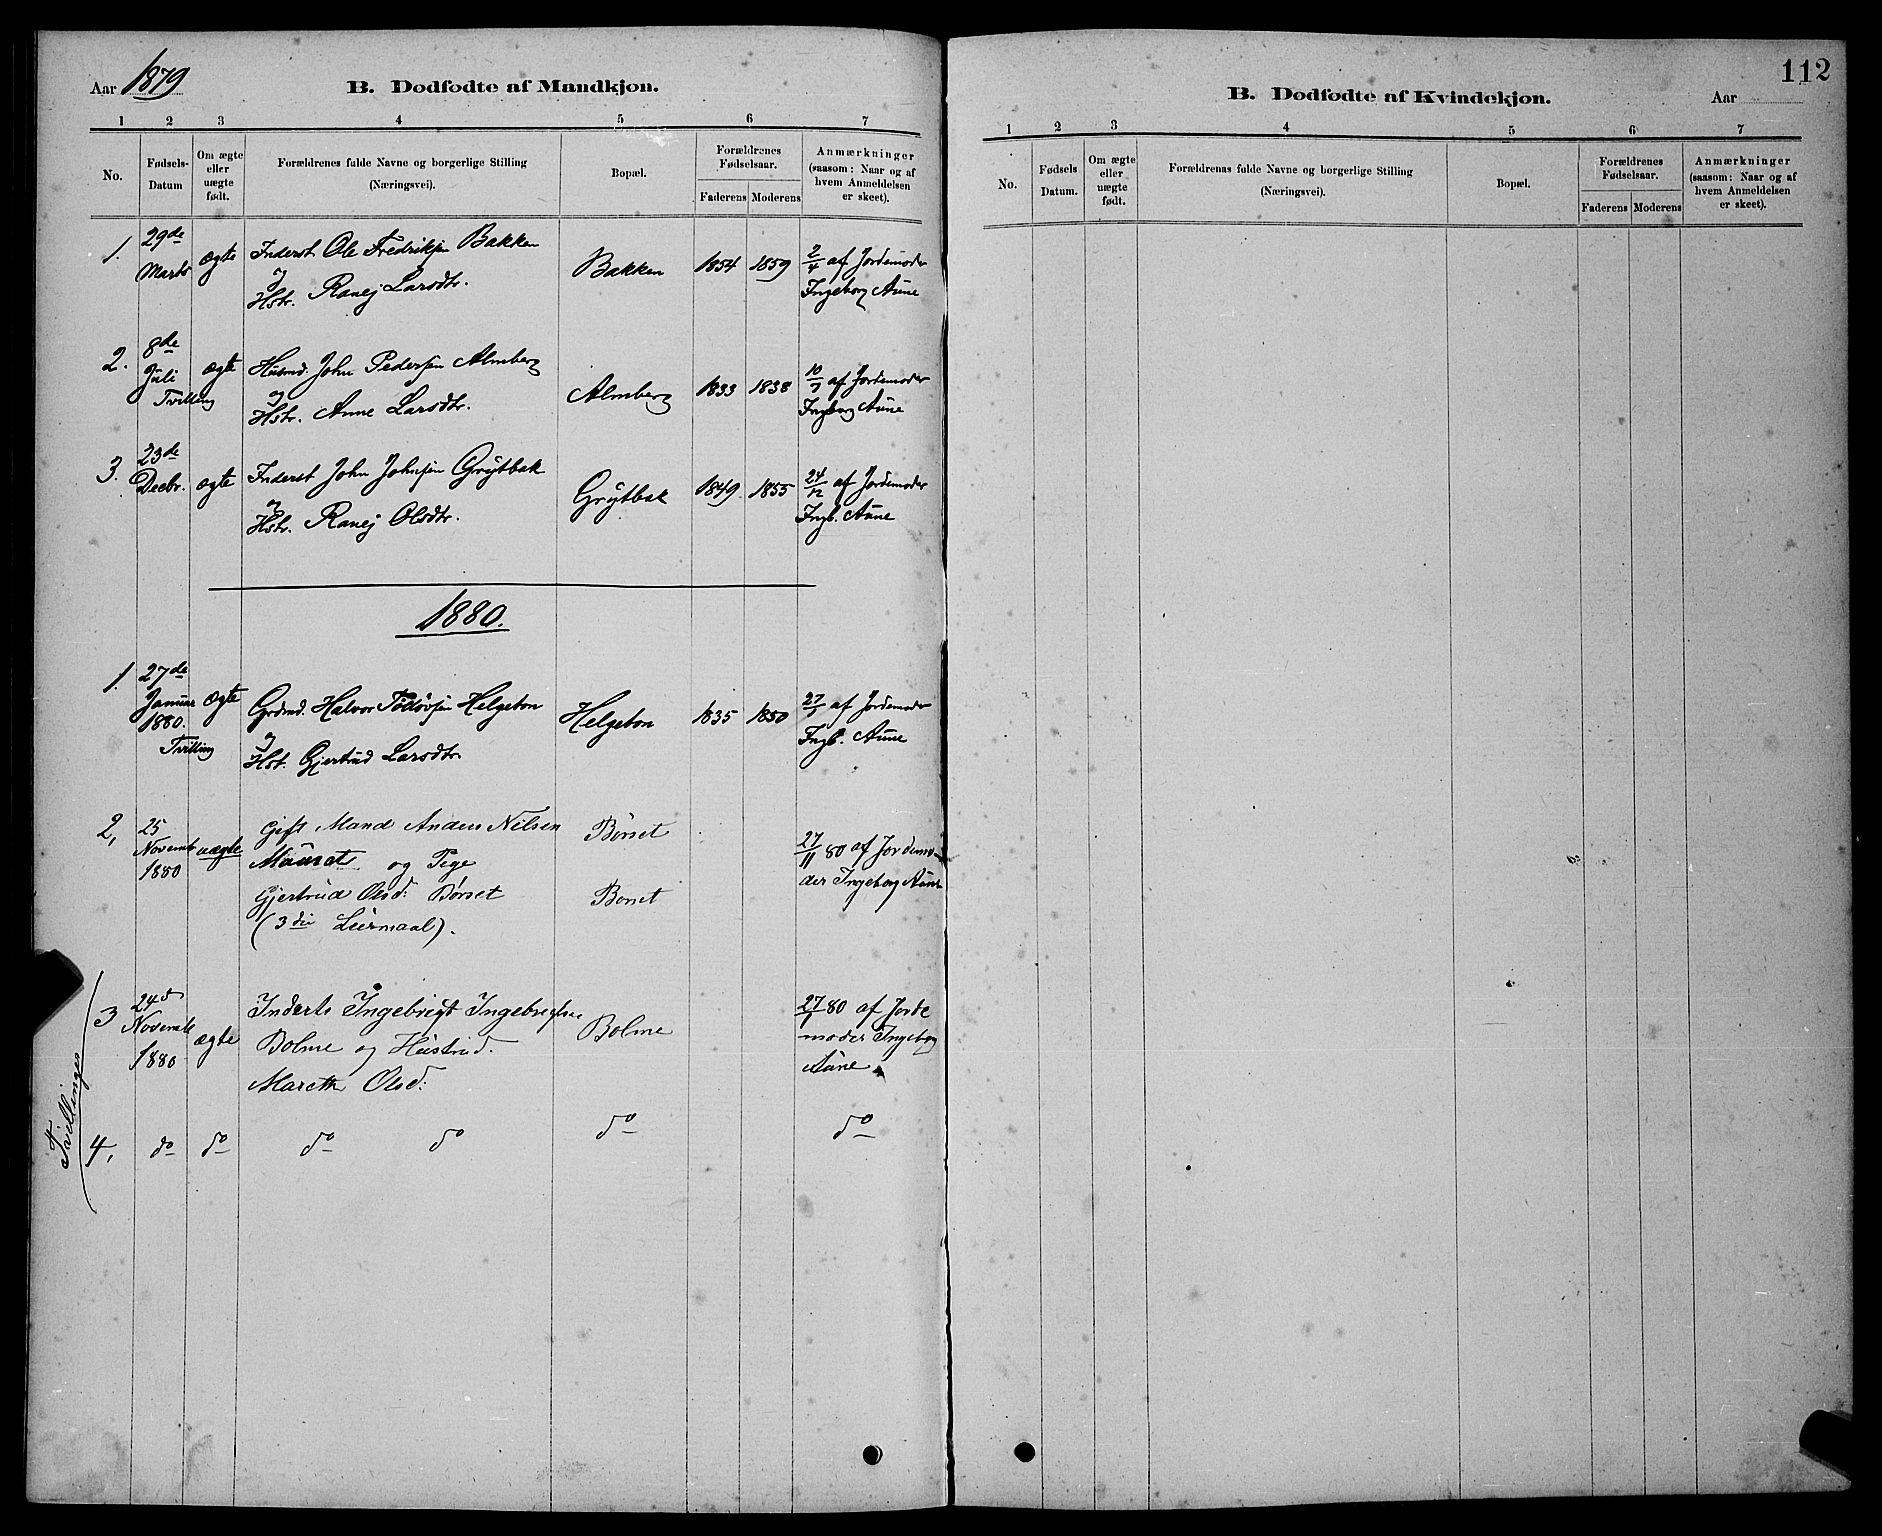 Aar 1879
B. Dødfødte af Mandkjøn.
1 2 3 4 5 6 7
No.
Fødsels-
Datum
Om ægte
eller
uægte
født.
Forældrenes fulde Navne og borgerlige Stilling
(Næringsvei).
Bopæl.
Forældrenes
Fødselsaar.
Faderens Moderens
Anmærkninger
(saasom: Naar og af
hvem Anmeldelsen
er skeet).
1. 29de
Marts
ægte
Inderst Ole Fredriksen Bakken
og
Hstr. Ranej Larsdtr.
Bakken
1854 1859
2/4 af Jordemoder
Ingeborg Aune
2. 8de
Juli
Tvilling
ægte
Husmd. John Pedersen Almberg
og
Hstr. Anne Larsdtr.
Almberg
1833 1838
10/7 af Jordemoder
Ingborg Aune
3. 23de
Decbr.
ægte
Inderst John Johnsen Grytbak
og
Hstr. Ranej Olsdtr.
Grytbak
1849. 1855
24/12 af Jordemoder
Ingb. Aune
1880.
1. 27de
Januar
1880.
Tvilling
ægte
Grdmd. Halvor Halvorsen Helgeton
og
Hst. Gjertrud Larsdtr.
Helgeton
1835 1850
27/1 af Jordemoder
Ingb. Aune
2, 25
Novemb
1880
uægte
Gift Mand Anders Nilsen
og Pige
Gjertrud Olsd: Børset
(3die Leiermaal).
Børset
Børset
27/11 80 af Jordemo-
der Ingeborg Aune
Tvillinger
3 24d
Novembe
1880
ægte
Inderts Ingebrigt Ingebrigtsen
Bolme og Hustrud.
Mareth Olsd:
Bolme
80 af Jorde
moder Ingeborg
Aune
4, do do do do do do
112
B. Dødfødte af Kvindekjøn.
Aar
1 2 3 4 5 6 7
No.
Fødsels
Datum.
Om ægte
eller
uægte
født.
Forældrenas fulde Navne og borgerlige Stilling
(Næringsvei).
Bopæl.
Forældrenes
Fødselsaar.
Faderens Moderens
Anmærkninger
(saasom: Naar og af
hvem Anmeldelsen
er skeet).